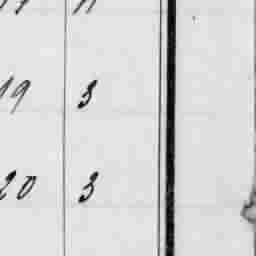 19 3
20 3